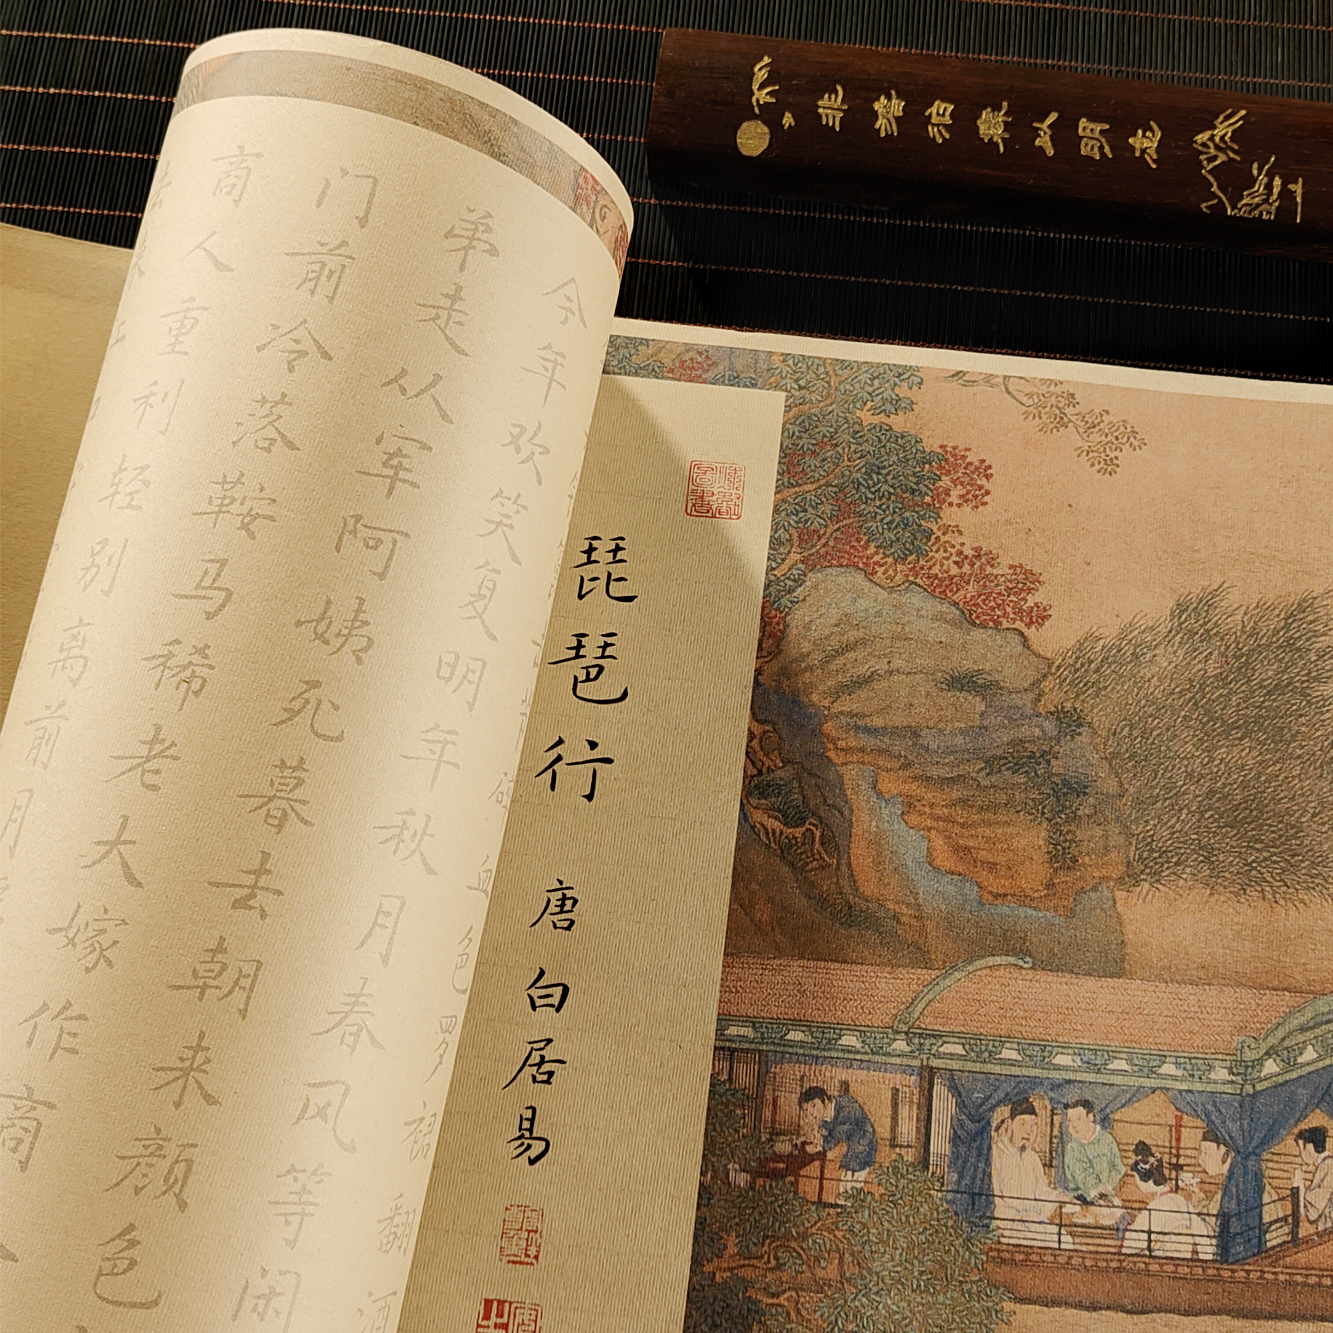 非
泊
以明志
琵琶行 唐 白居易
血色罗裙翻酒
今年欢笑复明年秋月春风等闲
弟走从军阿姨死暮去朝来颜色
门前冷落鞍马稀老大嫁作商人
商人重利轻别离前月